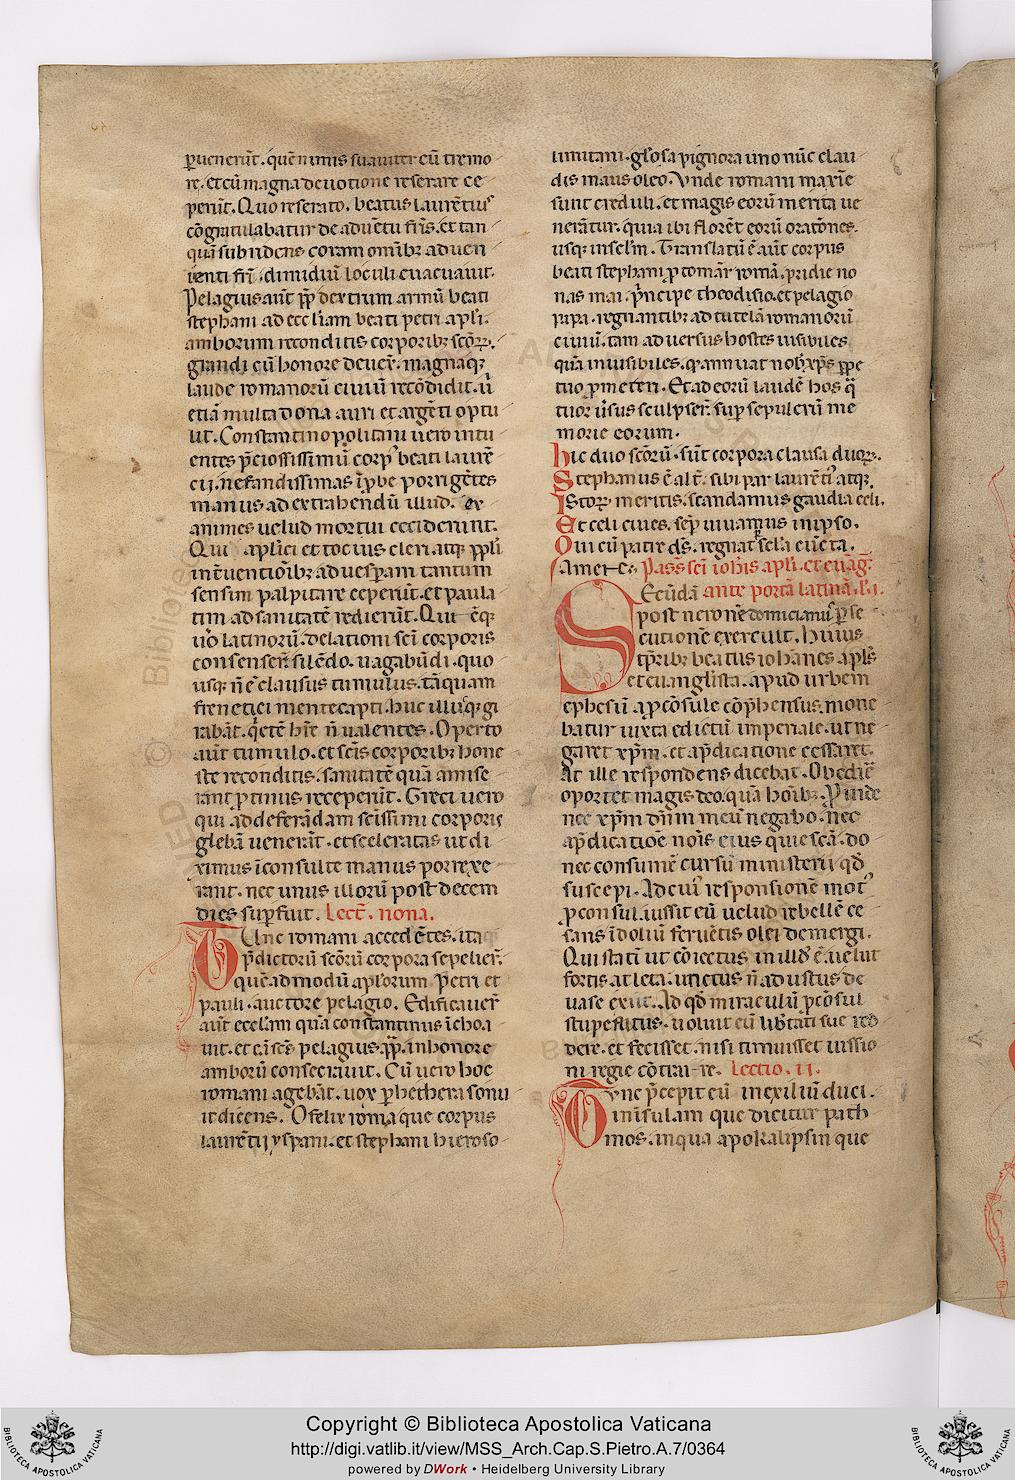 puenerūt. quē nimis suauiter cū tremo
re. et cū magna deuotione reserare ce
perūt. Quo reserato. beatus laurētiꝰ
cōgratulabatur de aduētu fr̄is. et tan
quā subridens coram om̄ibꝫ aduen
ienti fr̄i. dimidiū loculi euacuauit.
Pelagius aut̄ pp̄ dextrum armū beati
stephani ad eccl̄iam beati petri apl̄i.
amborum reconditis corporibꝫ sc̄oꝝ.
grandi cū honore deuex̄. magnaqꝫ
laude romanorū ciuiū recōdidit. ū
etiā multa dona auri et argēti optu
lit. Constantinopolitani uero intu
entes p̄ciosissimū corpꝰ beati laurē
cij. nefandissimas īp̱be porrigētes
manus ad extrahendū illud. ex
animes uelud mortui ceciderunt.
Qui apl̄ici et tocius cleri atqꝫ pp̄li
int̄uentiōibꝫ ad uesp̱am tantum
sensim palpitare ceperūt. et paula
tim ad sanitatē redierūt. Qui ēqꝫ
uō latinorū. delationi sc̄i corporis
consenser̄ silēdo. uagabūdi. quo
usqꝫ n̄ ē clausus tumulus. tāquam
frenetici mente capti. huc illucqꝫ gi
rabāt. q̄etē h̄re n̄ ualentes. Operto
aut̄ tumulo. et sc̄is corporibꝫ hone
ste reconditis. sanitatē quā amise
rant p̱tinus receperūt. Greci uero
qui ad deferādam scissimi corporis
glebā uenerāt. et sceleratas ut di
ximus īconsulte manus porrexe
rant. nec unus illorū post decem
dies sup̱fuit. Lect̄. nona.
Tunc romani accedētes. itaq
p̄dictorū sc̄orū corpora sepelier̄.
quēadmodū apl̄orum petri et
pauli. auctore pelagio. Edificauer̄
aut̄ eccl̄iam quā constantinus īchoa
uit. et eā sc̄s pelagius. pp̄. in honore
amborū consecrauit. Cū uero hoc
romani agebāt. uox p̱ hethera sonu
it dicens. O felix roma que corpus
laurētij yspani. et stephani hieroso
limitani. gl̄osa pignora uno nūc clau
dis mausoleo. Vnde romani maxīe
sunt creduli. et magis eorū merita ue
nerātur. quia ibi florēt eorū oratōnes.
usqꝫ in sel̄m. Translatū ē aut̄ corpus
beati stephani p̱tomar̄ romā. pridie no
nas mai. p̄ncipe theodisio. et pelagio
papa. regnantibꝫ ad tutelā romanorū
ciuiū. tam aduersus hostes uisibiles
quā inuisibiles. q̄ annuat nob̄ xp̄s pp̱e
tuo p̱meteri. Et ad eorū laudē hos q̄
tuor ūsus sculpser̄. sup̱ sepulcrū me
morie eorum.
Hic duo sc̄orū. sūt corpora clausa duoꝝ.
Stephanus ē alt̄. sibi par laurētiꝰ atqꝫ.
Istoꝝ meritis. scandamus gaudia celi.
Et celi ciues. sēp uiuamus in ipso.
Qui cū patre dꝰ. regnat secl̄a cūcta.
Amen. Pass̄ sc̄i ioh̄is apl̄i. et euāḡ.
Ecūdā ante portā latinā. l̄.i.
post neronē domicianꝰ p̱se
cutionē exercuit. Huius
tp̄ribꝫ beatus iohānes apl̄s
et euangl̄ista. apud urbem
ephesiū a p̱cōsule cōp̱hensus. mone
batur iuxta edictū imperiale. ut ne
garet xp̄m. et a p̄dicatione cessaret.
At ille respondens dicebat. Obediē
oportet magis deo. quā hōibꝫ. Proinde
nec xp̄m dn̄m meū negabo. nec
a p̄dicatiōe noīs eius quiescā. do
nec consumē cursū ministerii qd̄
suscepi. Ad cuiꝰ responsionē motꝰ
p̱consul. iussit eū uelud rebellē ce
saris ī doliū feruētis olei demergi.
Qui statī ut cōiectus in illd̄ ē. uelut
fortis atleta. unctus n̄ adustus de
uase exiit. Ad qd̄ miraculū p̱cōsul
stupefactus. uoluit eū liḇtati sue red
dere. et fecisset. nisi timuisset iussio
ni regie cōtraire. Lectio. ii.
Tunc p̄cepit eū in exiliū duci.
in īsulam que dicitur path
mos. in qua apokalipsin que
Copyright © Biblioteca Apostolica Vaticana
http://digi.vatlib.it/view/MSS_Arch.Cap.S.Pietro.A.7/0364
powered by DWork • Heidelberg University Library
BIBLIOTECA APOSTOLICA VATICANA
BIBLIOTECA APOSTOLICA VATICANA